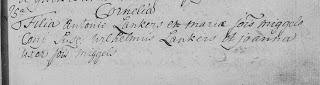 Cornelia
25a Filia Antonii Lankers et mariæ fois miggels
Conf. Susc. wilhelmus Lankers et joanna
uxor fois miggels